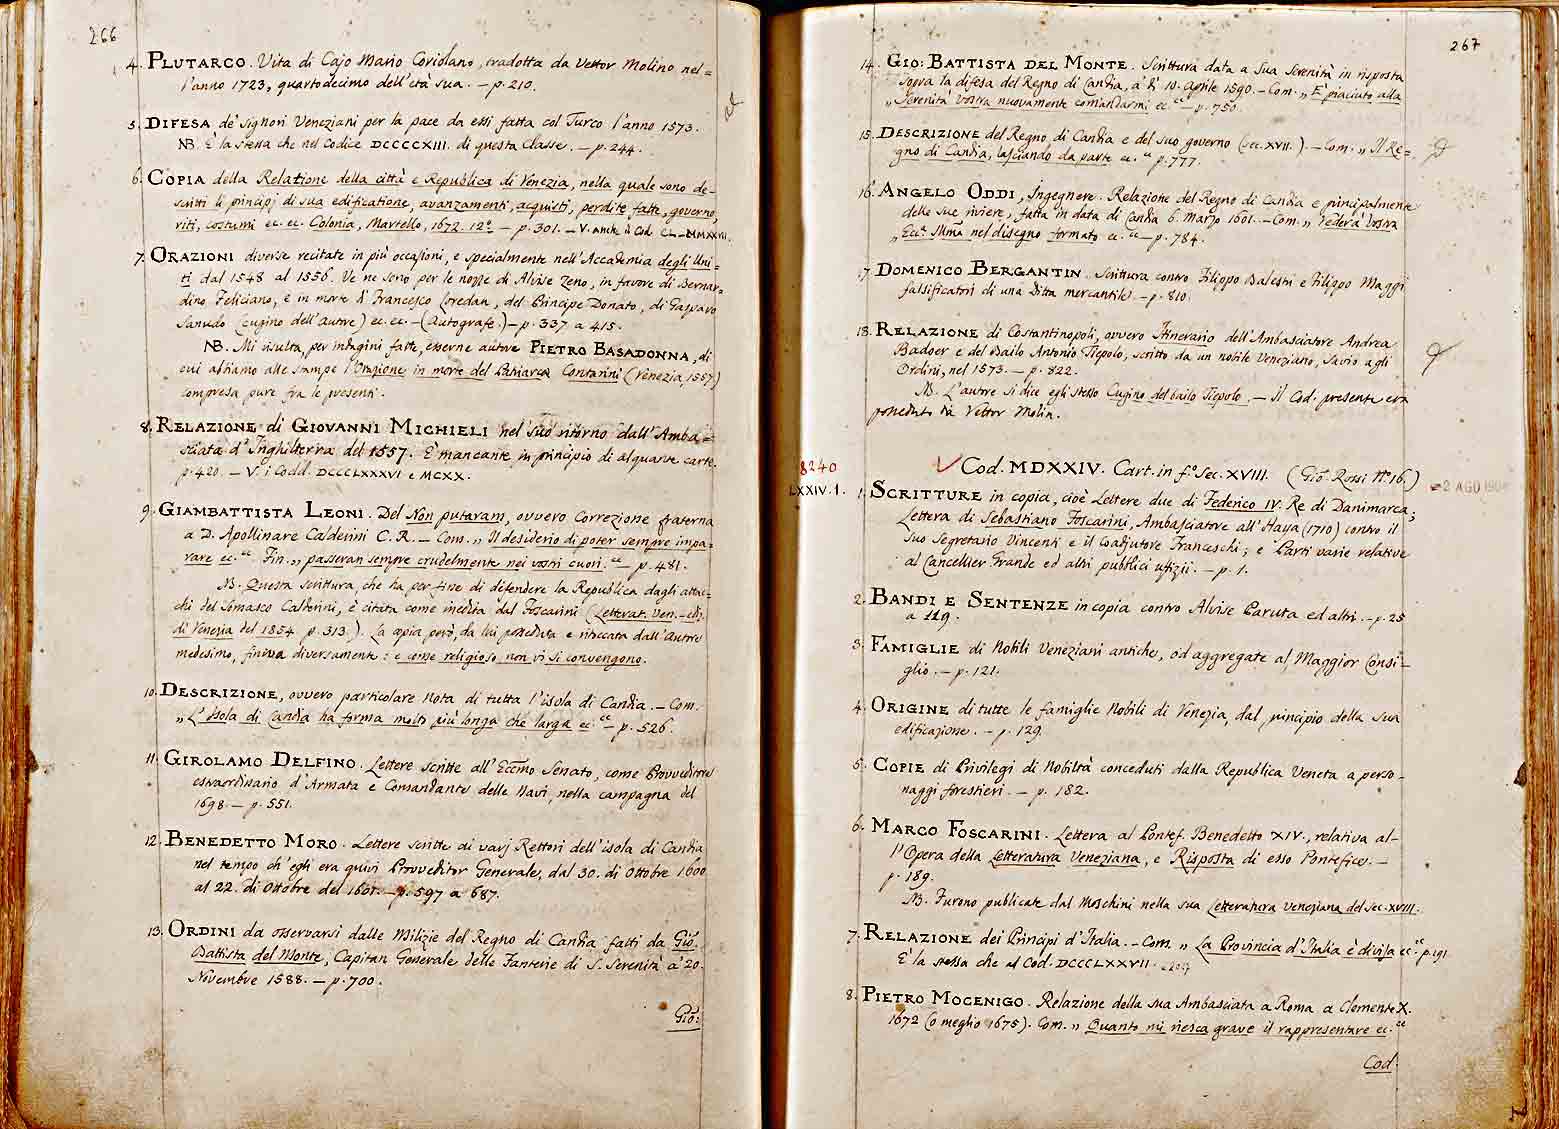 266
4. PLUTARCO. Vita di Cajo Mario Coriolano, tradotta da Vettor Molino nel=
l'anno 1723, quartodecimo dell'età sua. – p. 210.
5. DIFESA de' Signori Veneziani per la pace da essi fatta col Turco l'anno 1573.
NB. È la stessa che nel Codice DCCCCXIII. di questa Classe. – p. 244.
6. COPIA della Relazione della città e Republica di Venezia, nella quale sono de-
scritti li principj di sua edificatione, avanzamenti, acquisti, perdite fatte, governo,
riti, costumi ec. ec. Colonia, Martello, 1672. 12º. – p. 301. – V. anche il Cod. CL–MMXXVII.
7. ORAZIONI diverse recitate in più occasioni, e specialmente nell'Accademia degli Uni-
ti dal 1548 al 1556. Ve ne sono per le nozze di Alvise Zeno, in favore di Bernar-
dino Feliciano, e in morte di Francesco Loredan, del Principe Donato, di Gasparo
Sanudo (cugino dell'autre) ec. ec. – (Autografe.) – p. 337 a 415.
NB. Mi risulta, per indagini fatte, esserne autore PIETRO BASADONNA, di
cui abbiamo alle stampe l'Orazione in morte del Patriarca Contarini (Venezia, 1557)
compresa pure fra le presenti.
8. RELAZIONE di GIOVANNI MICHIELI nel suo ritorno dall'Amba=
sciata d'Inghilterra del 1557. È mancante in principio di alquante carte.
p. 420. – V. i Codd. DCCCLXXXVI e MCXX.
9. GIAMBATTISTA LEONI. Del Non putaram, ovvero Correzione fraterna
a D. Apollinare Calderini C. R. – Com. „ Il desiderio di poter sempre impa-
rare ec. “ Fin. „ passeran sempre crudelmente nei vostri cuori. “ p. 481.
NB. Questa scrittura, che ha per fine di difendere la Republica dagli attac-
chi del Somasco Calderini, è citata come inedita dal Foscarini (Letterat. Ven. – ediz.
di Venezia del 1854 p. 313.). La copia però, da lui posseduta e ritoccata dall'Autore
medesimo, finiva diversamente: e come religioso, non vi si convengono.
10. DESCRIZIONE, ovvero particolare Nota di tutta l'isola di Candia. – Com.
„ L'Isola di Candia ha forma molto più longa che larga ec. “ – p. 526.
11. GIROLAMO DELFINO. Lettere scritte all'Eccmo Senato, come Provveditore
estraordinario d'Armata e Comandante delle Navi, nella campagna del
1698. – p. 551.
12. BENEDETTO MORO. Lettere scritte ai varj Rettori dell'isola di Candia
nel tempo ch'egli era quivi Provveditor Generale, dal 30. di Ottobre 1600
al 22. di Ottobre del 1601. – p. 597 a 687.
13. ORDINI da osservarsi dalle Milizie del Regno di Candia fatti da Gio.
Battista del Monte, Capitan Generale delle Fanterie di S. Serenità a' 20.
Novembre 1588. – p. 700.
Gio:
267
14. GIO: BATTISTA DEL MONTE. Scrittura data a Sua Serenità in risposta
sopra la difesa del Regno di Candia, a' dì 10. Aprile 1590. – Com. „ È piaciuto alla
„ Serenità Vostra nuovamente comandarmi ec. “ – p. 750.
15. DESCRIZIONE del Regno di Candia e del suo governo (sec. XVII.). – Com. „ Il Re=
gno di Candia, lasciando da parte ec. “ p. 777.
16. ANGELO ODDI, Ingegnere. Relazione del Regno di Candia e principalmente
delle sue riviere, fatta in data di Candia 6. Marzo 1601. – Com. „ Vederà Vostra
„ Ecca Illma nel disegno formato ec. “ – p. 784.
17. DOMENICO BERGANTIN. Scrittura contro Filippo Balestri e Filippo Maggi
falsificatori di una Ditta mercantile. – p. 810.
18. RELAZIONE di Costantinopoli, ovvero Itinerario dell'Ambasciatore Andrea
Badoer e del Bailo Antonio Tiepolo, scritto da un nobile Veneziano, Savio agli
Ordini, nel 1573. – p. 822.
NB. L'autre si dice egli stesso Cugino del bailo Tiepolo. – Il Cod. presente era
posseduto da Vettor Molin.
8240
Cod. MDXXIV. Cart. in f.º Sec. XVIII. (Gio. Rossi Nº 16.)
LXXIV. 1.
2 AGO
1. SCRITTURE in copia, cioè Lettere due di Federico IV. Re di Danimarca;
Lettera di Sebastiano Foscarini, Ambasciatore all'Haya (1710) contro il
suo Segretario Vincenti e il Coadjutore Franceschi; e Parti varie relative
al Cancellier Grande ed altri pubblici ufizii. – p. 1.
2. BANDI E SENTENZE in copia contro Alvise Paruta ed altri. – p. 25
a 119.
3. FAMIGLIE di Nobili Veneziani antiche, od aggregate al Maggior Consi-
glio. – p. 121.
4. ORIGINE di tutte le famiglie Nobili di Venezia, dal principio della sua
edificazione. – p. 129.
5. COPIE di Privilegi di Nobiltà conceduti dalla Republica Veneta a perso-
naggi forestieri. – p. 182.
6. MARCO FOSCARINI. Lettera al Pontef. Benedetto XIV., relativa al-
l'Opera della Letteratura Veneziana, e Risposta di esso Pontefice. –
p. 189.
NB. Furono publicate dal Moschini nella sua Letteratura Veneziana del sec. XVIII.
7. RELAZIONE dei Principi d'Italia. – Com. „ La Provincia d'Italia è divisa ec. “ p. 191.
È la stessa che al Cod. DCCCLXXVII.
8. PIETRO MOCENIGO. Relazione della sua Ambasciata a Roma a Clemente X.
1672 (o meglio 1675). Com. „ Quanto mi riesca grave il rappresentare ec. “
Cod.